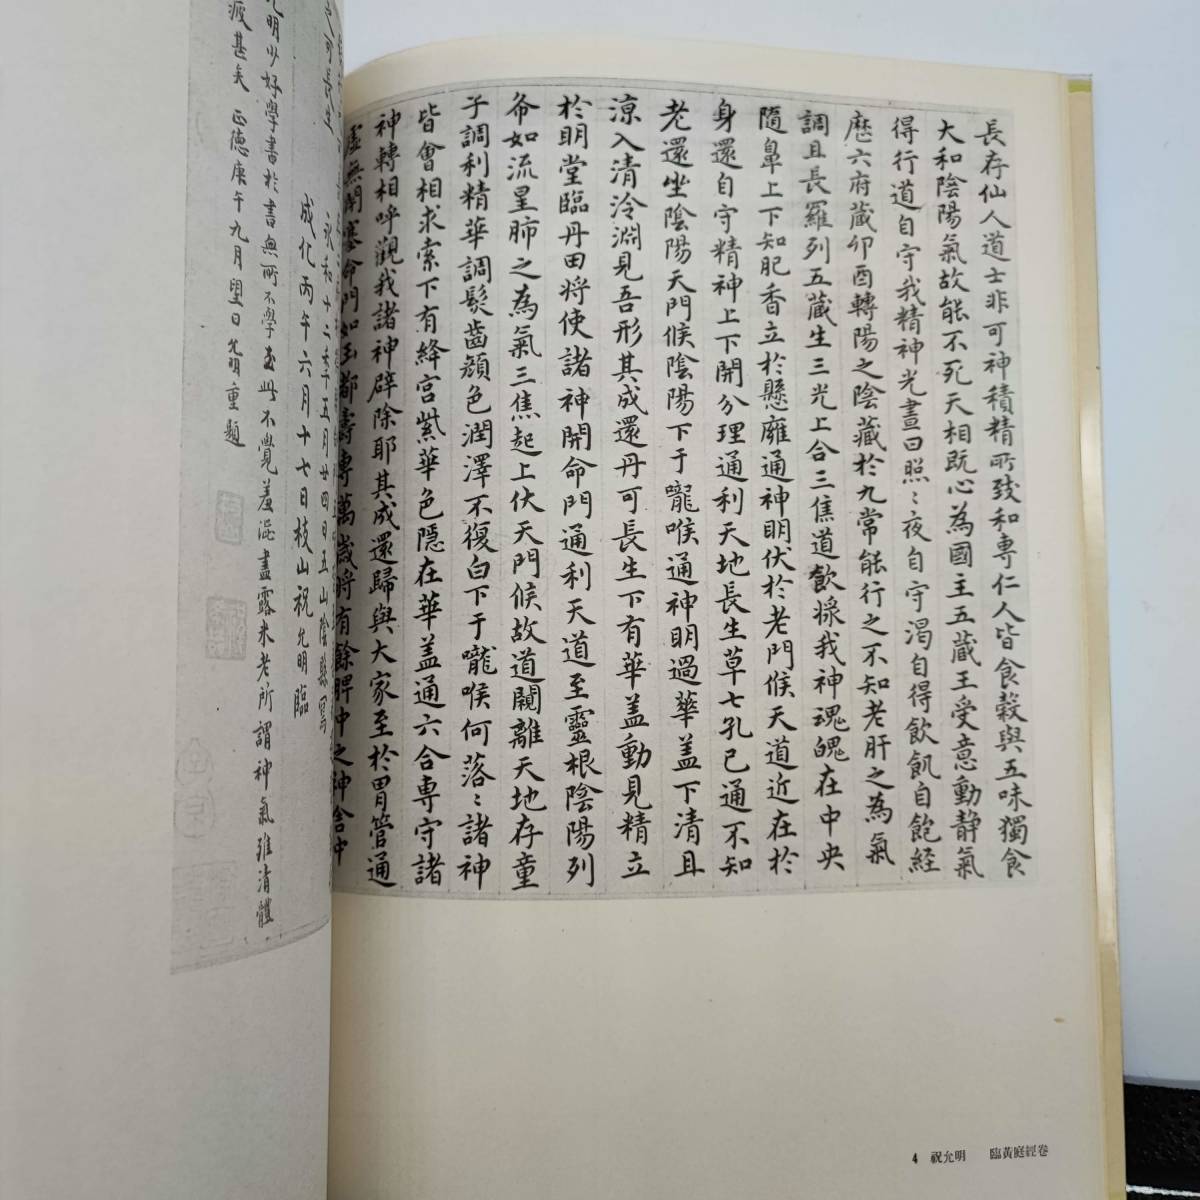 長存仙人道士非可神積精所致和專仁人皆食穀與五味獨食
大和陰陽氣故能不死天相既心為國主五藏王受意動靜氣
得行道自守我精神光晝日照〻夜自守渴自得飲飢自飽經
歷六府藏卯酉轉陽之陰藏於九常能行之不知老肝之為氣
調且長羅列五藏生三光上合三焦道飲漿我神魂魄在中央
隨鼻上下知肥香立於懸廱通神明伏於老門候天道近在於
身還自守精神上下開分理通利天地長生草七孔已通不知
老還坐陰陽天門候陰陽下于嚨喉通神明過華蓋下清且
涼入清泠淵見吾形其成還丹可長生下有華蓋動見精立
於明堂臨丹田將使諸神開命門通利天道至靈根陰陽列
布如流星肺之為氣三焦起上伏天門候故道闚離天地存童
子調利精華調髮齒顏色潤澤不復白下于嚨喉何落〻諸神
皆會相求索下有絳宫紫華色隱在華蓋通六合專守諸
神轉相呼觀我諸神辟除耶其成還歸與大家至於胃管通
虛無閉塞命門如玉都壽專萬歲將有餘脾中之神舍中
之可長生
永和十二年五月廿四日五山陰縣寫
成化丙午六月十七日枝山祝允明臨
允明少好學書於書無所不學此不覺羞澁盡露米老所謂神氣雖清體
疲甚矣 正德庚午九月望日允明重題
4 祝允明 臨黃庭經卷